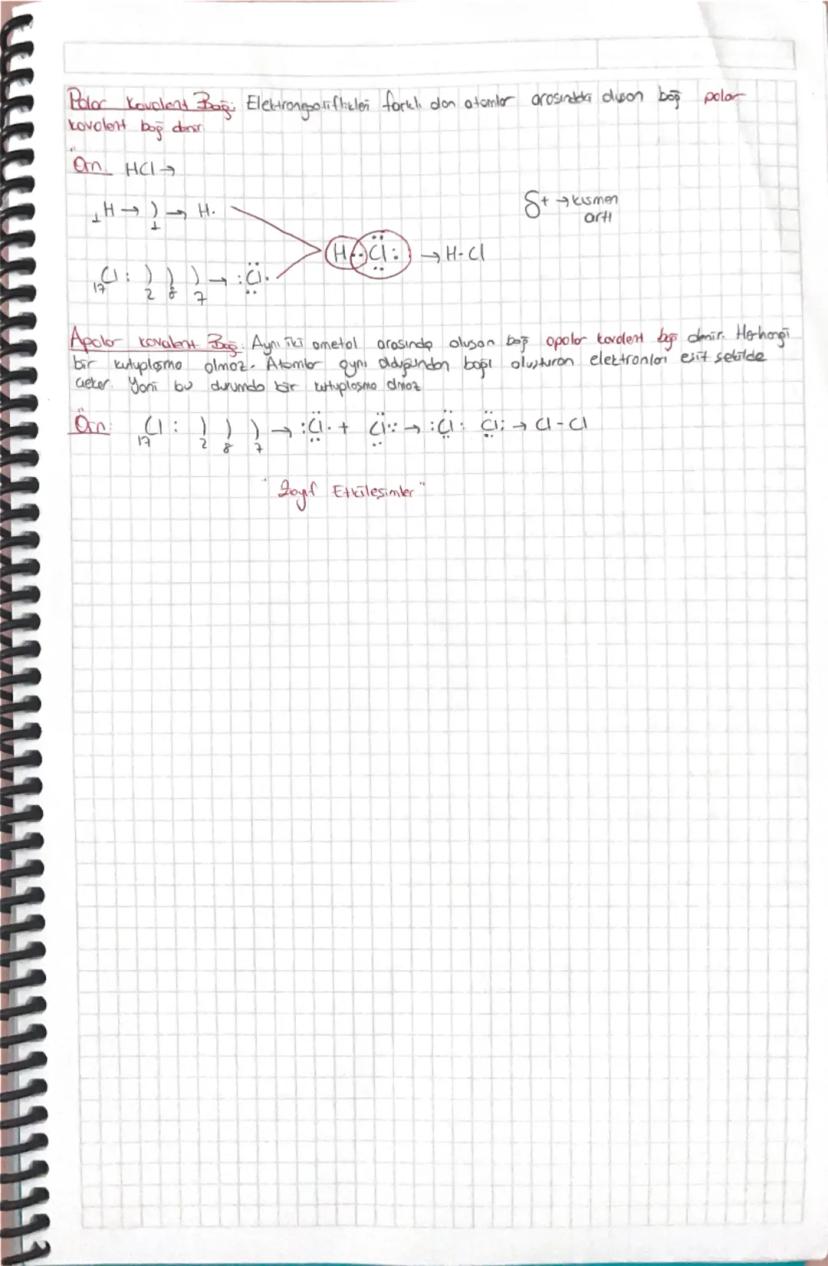 Polar Kovalent Bağ: Elektronegatiflikleri farklı olan atomlar arasındaki oluşan bağ polar
kovalent bağ denir.
Örn. HCl →
₁H → ) → H·
1
δ+ → kısmen
artı
H ·· Cl : → H-Cl
₁₇Cl : ) ) ) → :Cl·
2 8 7
Apolar kovalent Bağ: Aynı iki ametal arasında oluşan bağ apolar kovalent bağ denir. Herhangi
bir kutuplaşma olmaz. Atomlar aynı olduğundan bağı oluşturan elektronları eşit şekilde
çeker. Yani bu durumda bir kutuplaşma olmaz
Örn: ₁₇Cl : ) ) ) → :Cl· + Cl: → :Cl: Cl: → Cl-Cl
2 8 7
"Zayıf Etkileşimler"